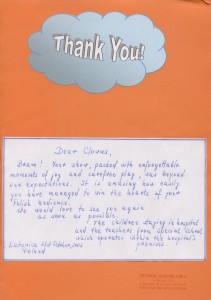 Thank You!
Dear Clowns,
Bravo! Your show, packed with unforgettable
moments of joy and carefree play, was beyond
our expectations. It is amazing how easily
you have managed to win the hearts of your
Polish audience.
We would love to see you again
as soon as possible.
The children staying in hospital
and the teachers from special school
which operates within the hospital's
premises.
Poland